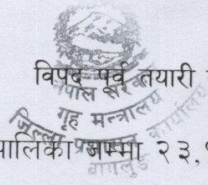 विपद पूर्व तयारी
नेपाल सरकार
गृह मन्त्रालय
जिल्ला प्रशासन कार्यालय
पालिका जम्मा २३,
बागलुङ